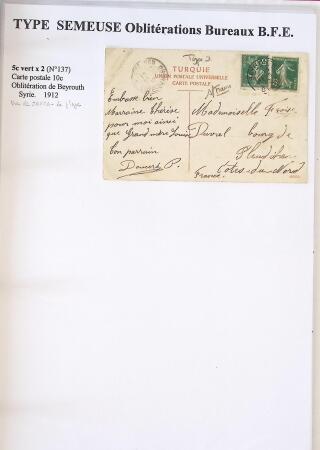 TYPE SEMEUSE Oblitérations Bureaux B.F.E.
5c vert x 2 (N°137)
Carte postale 10c
Oblitération de Beyrouth
Syrie. 1912
Vue de
TURQUIE
UNION POSTALE UNIVERSELLE
CARTE POSTALE
Embrasse bien
Marraine Thérèse
pour moi ainsi
que Grand mère Louise
bon parrain
P.
Mademoiselle
Duval bourg de
Côtes-du-Nord
France